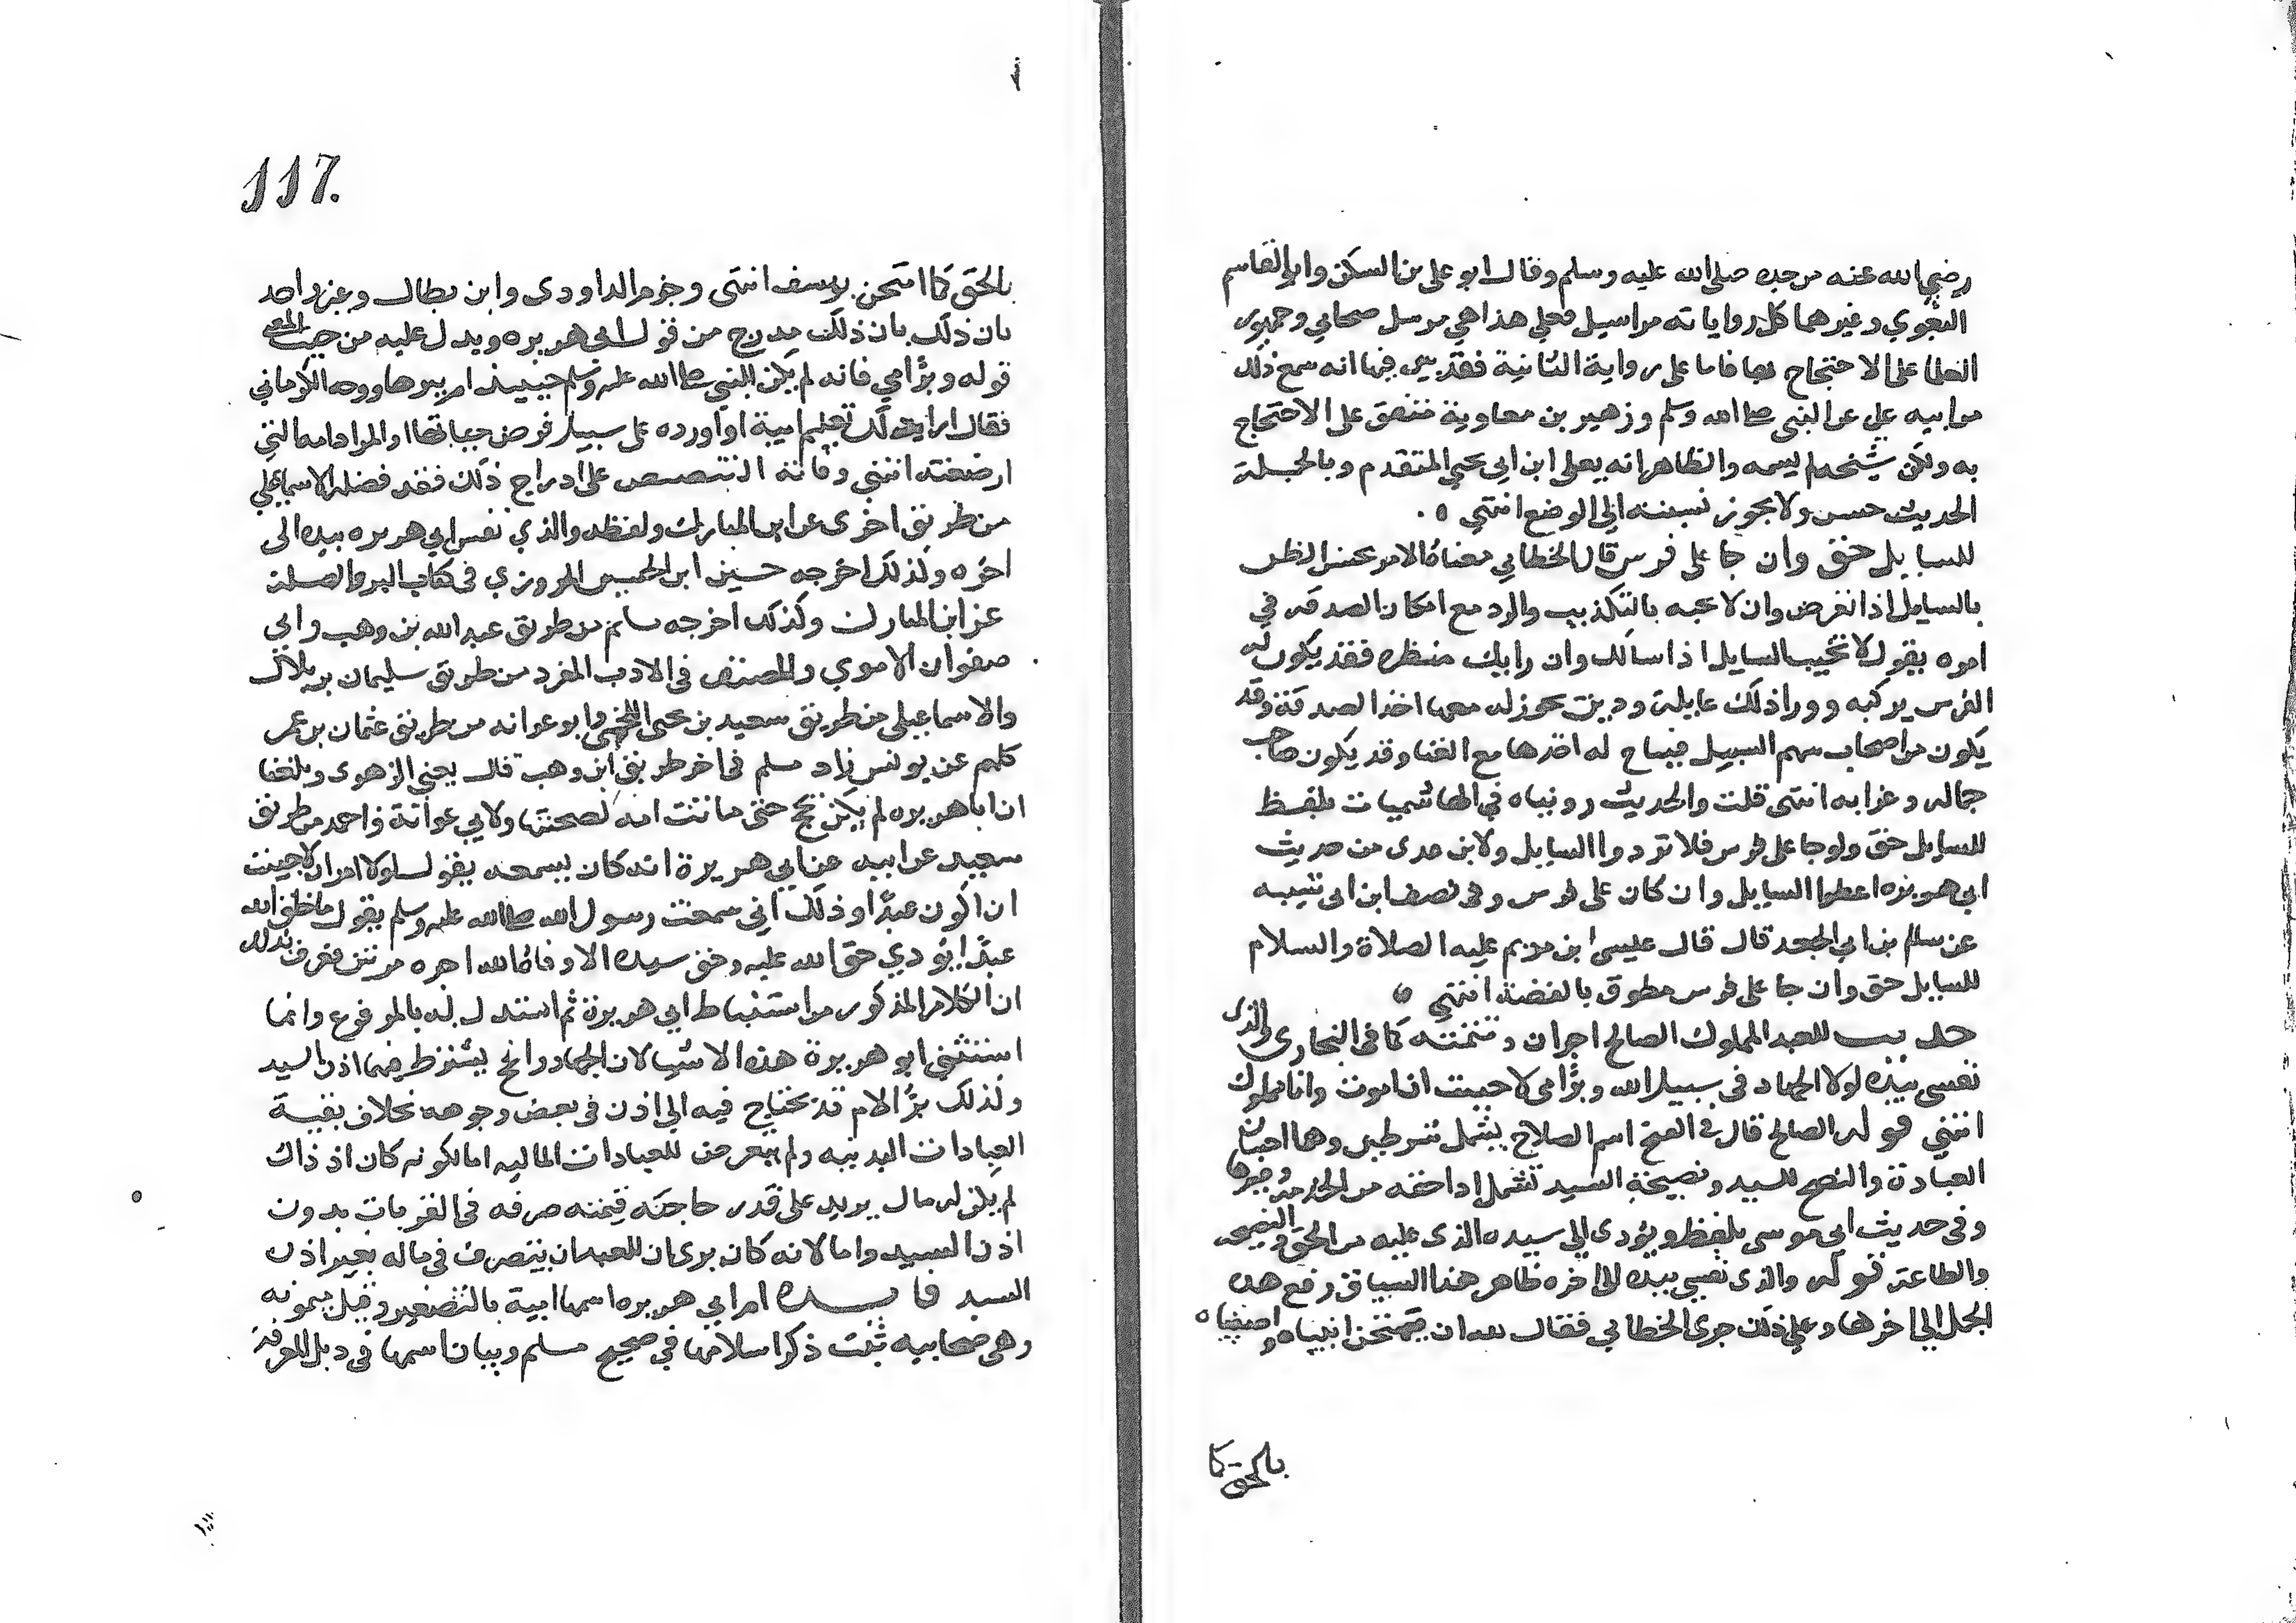 رضي الله عنه من جده صلى الله عليه وسلم وقال ابو علي بن السكن وابو القاسم
البغوي وغيرهما كل رواياته مراسيل فعلي هذا هي مرسل صحابي وجمهور
العلما على الاحتجاج بها فاما على رواية الثانية فقد بين فيها انه سمع ذلك
من ابيه علي عن النبي صلى الله وسلم وزهير بن معاوية متفق على الاحتجاج
به ولكن شيخه لم يسمه والظاهر انه يعلى ابن ابي يحيى المتقدم وبالجملة
الحديث حسن ولا يجوز نسبته الى الوضع انتهي ٥
للسايل حق وان جا على فرس قال الخطابي معناه الامر بحسن الظن
بالسايل اذا تعرض وان لا يجبه بالتكذيب والرد مع امكان الصدق في
امره يقول لا تخيب السايل اذا سالك وان رابك منظره فقد يكون له
الفرس يركبه ووراذلك عايلة ودين يجوز له معها اخذ الصدقة وقد
يكون من اصحاب سهم السبيل فيباح له اخذها مع الغنا وقد يكون صاحب
حماله وغرابه انتهى قلت والحديث رويناه في الهاشميات بلفظ
للسايل حق ولو جا على فرس فلا تردوا السايل ولابن عدى من حديث
ابي هريره اعطوا السايل وان كان على فرس وفي نصف ابن ابى شيبه
عن سالم بن ابي الجعد قال قال عيسى ابن مريم عليه الصلاة والسلام
للسايل حق وان جا على فرس مطوق بالفضة انتهي ٥
حديث للعبد المملوك الصالح اجران وتتمته كما في البخارى والذى
نفسي بيده لولا الجهاد في سبيل الله وبر امي لاحببت ان اموت وانا مملوك
انتهي قوله الصالح قال في الفتح اسم الصلاح يشمل شرطين وهما احسان
العبادة والنصح للسيد ونصيحة السيد تشمل اداحقه من الخدمة وغيرها
وفي حديث ابي موسى بلفظ ويؤدى الي سيده الذى عليه من الحق والنصيحه
والطاعة قوله والذى نفسي بيده الى اخره ظاهر هذا السياق رفع هذه
الجمل الي اخرها وعلي ذلك جرى الخطابي فقال لله ان يمتحن انبياه واصفياه
بالحق كما
117.
بالحق كما امتحن يوسف انتهى وجزم الداودى وابن بطال وغير واحد
بان ذلك بان ذلك مدرج من قول ابى هريره ويدل عليه من حيث المعنى
قوله وبر امي فانه لم يكن للنبي صلى الله عليه وسلم حينيذ ام يبرها ووجه الكرماني
فقال اراد بذلك تعليم امته او اورده على سبيل فرض حياتها او المراد امه التي
ارضعته انتهي وفاته التنصيص على ادراج ذلك فقد فصله الاسماعيلي
من طريق اخرى عن ابن المبارك ولفظه والذي نفس ابي هريره بيده الى
اخره وكذلك اخرجه حسين ابن الحسن المروزي في كتاب البر والصلة
عن ابن المبارك وكذلك اخرجه مسلم من طريق عبد الله بن وهب وابي
صفوان الاموي والمصنف في الادب المفرد من طريق سليمان بن بلال
والاسماعيلى من طريق سعيد بن يحيى اللخمى وابو عوانه من طريق عثمان بن عمر
كلهم عن يونس زاد مسلم في اخر طريق ابن وهب قال يعني الزهرى وبلغنا
ان ابا هريره لم يكن يحج حتى ماتت امه لصحبتها ولابي عوانة واحمد من طريق
سعيد عن ابيه عن ابي هريرة انه كان يسمعه يقول لولا امران لاحببت
ان اكون عبدا وذلك اني سمعت رسول الله صلى الله عليه وسلم يقول ما خلق الله
عبدًا يؤدي حق الله عليه وحق سيده الا وفاه الله اجره مرتين فعرف بذلك
ان الكلام المذكور من استنباط ابي هريرة ثم استدل له بالمرفوع وانما
استثنى ابو هريرة هذه الاشيا لان الجهاد والحج يشترط فيهما اذن السيد
ولذلك بر الام قد يحتاج فيه الي اذن في بعض وجوهه بخلاف بقية
العبادات البدنيه ولم يتعرض للعبادات الماليه اما لكونه كان اذ ذاك
لم يكن له مال يزيد على قدر حاجته فيمنه صرفه في القربات بدون
اذن السيد واما لانه كان يرى ان للعبد ان يتصرف في ماله بغير اذن
السيد فايده ام ابي هريره اسمها اميه بالتصغير وقيل ميمونه
وهي صحابيه ثبت ذكر اسلامها في صحيح مسلم وبيان اسمها في ذيل المعرفة